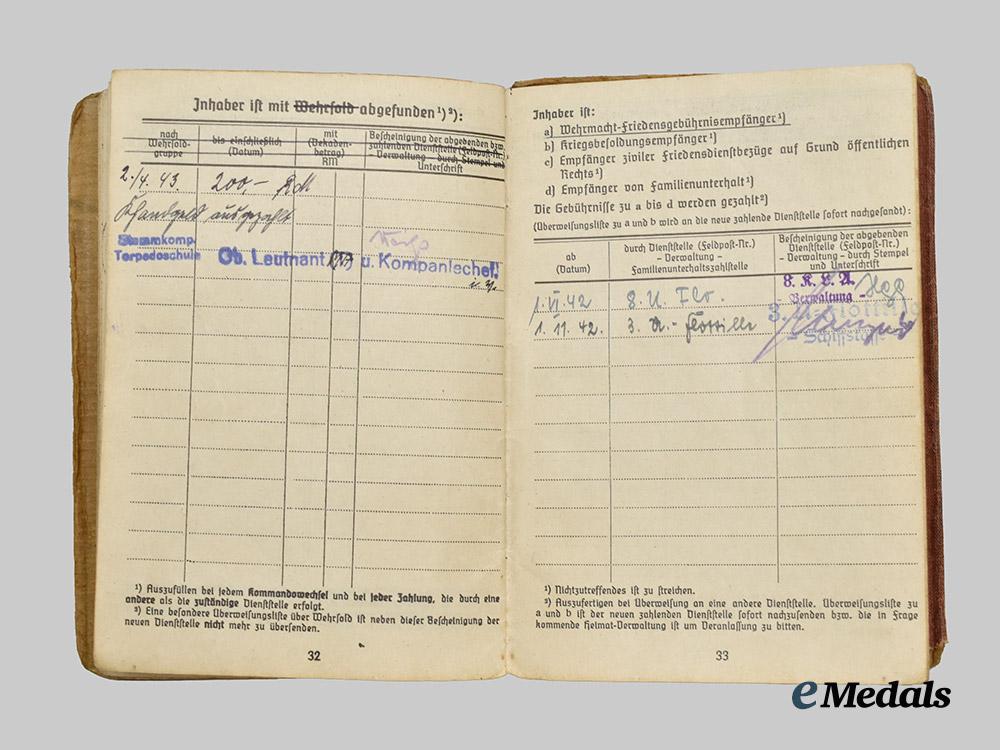 Inhaber ist mit Wehrsold abgefunden ¹) ²):
nach
Wehrsold-
gruppe
bis einschließlich
(Datum)
mit
(Dekaden-
betrag)
RM
Bescheinigung der abgebenden bzw.
zahlenden Dienststelle (Feldpost-Nr.)
- Verwaltung - durch Stempel und
Unterschrift
2./4. 43. 200,- RM
Handgeld ausgezahlt
Stammkomp.
Torpedoschule
Ob. Leutnant u. Kompaniechef.
¹) Auszufüllen bei jedem Kommandowechsel und bei jeder Zahlung, die durch eine
andere als die zuständige Dienststelle erfolgt.
²) Eine besondere Überweisungsliste über Wehrsold ist neben dieser Bescheinigung der
neuen Dienststelle nicht mehr zu übersenden.
32
Inhaber ist:
a) Wehrmacht-Friedensgebührnisempfänger ¹)
b) Kriegsbesoldungsempfänger ¹)
c) Empfänger ziviler Friedensdienstbezüge auf Grund öffentlichen
Rechts ¹)
d) Empfänger von Familienunterhalt ¹)
Die Gebührnisse zu a bis d werden gezahlt ²)
(Überweisungsliste zu a und b wird an die neue zahlende Dienststelle sofort nachgesandt):
ab
(Datum)
durch Dienststelle (Feldpost-Nr.)
- Verwaltung -
Familienunterhaltszahlstelle
Bescheinigung der abgebenden
Dienststelle (Feldpost-Nr.)
- Verwaltung - durch Stempel
und Unterschrift
8. K. S. A.
- Verwaltung -
1. VI. 42 8. U. Flo.
1. 11. 42. 3. U.- Flottille
3. U-Flottille
¹) Nichtzutreffendes ist zu streichen.
²) Auszufertigen bei Überweisung an eine andere Dienststelle. Überweisungsliste zu
a und b ist der neuen zahlenden Dienststelle sofort nachzusenden bzw. die in Frage
kommende Heimat-Verwaltung ist um Veranlassung zu bitten.
33
eMedals